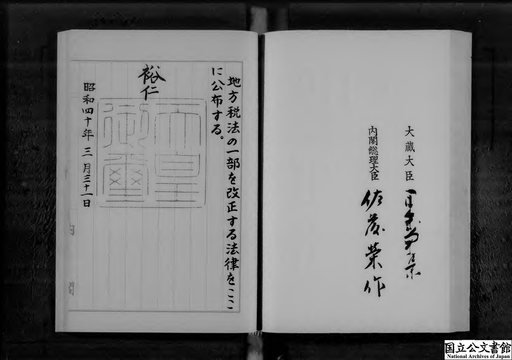 地方税法の一部を改正する法律をここ
に公布する。
裕仁
天皇
御璽
昭和四十年三月三十一日
大蔵大臣
内閣総理大臣 佐藤榮作
国立公文書館
National Archives of Japan